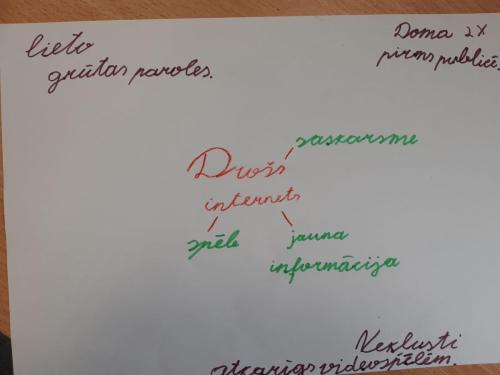 lieto
grūtas paroles.
Doma 2x
pirms publicē.
saskarsme
Drošs
internets
spēle
jauna
informācija
Nekļusti
atkarīgs videospēlēm.